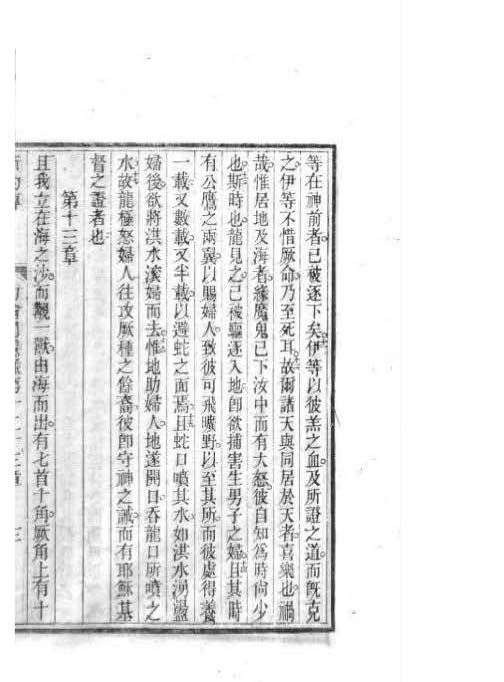 等在神前者已被逐下矣伊等以彼羔之血及所證之道而旣克
之伊等不惜厥命乃至死耳故爾諸天與同居於天者喜樂也禍
哉惟居地及海者緣魔鬼已下汝中而有大怒彼自知為時尚少
也斯時也龍見之己被驅逐入地卽欲捕害生男子之婦且其時
有公鷹之兩翼以賜婦人致彼可飛曠野以至其所而彼處得養
一載又數載又半載以避蛇之面焉且蛇口噴其水如洪水湧溢
婦後欲將洪水滾婦而去惟地助婦人地遂開口吞龍口所噴之
水故龍極怒婦人往攻厥種之餘裔彼卽守神之誡而有耶穌基
督之證者也
第十三章
且我立在海之沙而觀一獸由海而出有七首十角厥角上有十